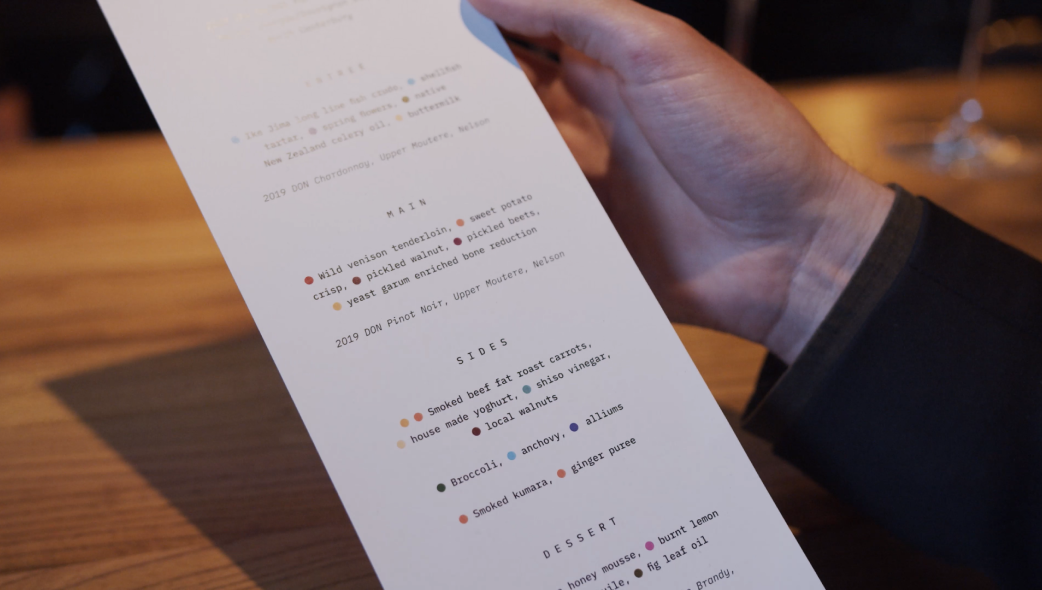 ENTREE
Ike Jima long line fish crudo, shellfish
tartar, spring flowers, native
New Zealand celery oil, buttermilk
2019 DON Chardonnay, Upper Moutere, Nelson
MAIN
Wild venison tenderloin, sweet potato
crisp, pickled walnut, pickled beets,
yeast garum enriched bone reduction
2019 DON Pinot Noir, Upper Moutere, Nelson
SIDES
Smoked beef fat roast carrots,
house made yoghurt, shiso vinegar,
local walnuts
Broccoli, anchovy, alliums
Smoked kumara, ginger puree
DESSERT
honey mousse, burnt lemon
fig leaf oil
Brandy,